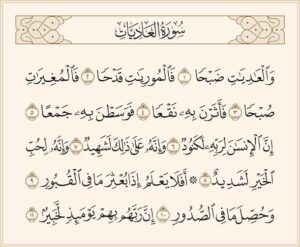 سُورَةُ الْعَادِيَاتِ
وَالْعَٰدِيَٰتِ ضَبْحًا ١ فَالْمُورِيَٰتِ قَدْحًا ٢ فَالْمُغِيرَٰتِ
صُبْحًا ٣ فَأَثَرْنَ بِهِۦ نَقْعًا ٤ فَوَسَطْنَ بِهِۦ جَمْعًا ٥
إِنَّ الْإِنسَٰنَ لِرَبِّهِۦ لَكَنُودٌ ٦ وَإِنَّهُۥ عَلَىٰ ذَٰلِكَ لَشَهِيدٌ ٧ وَإِنَّهُۥ لِحُبِّ
الْخَيْرِ لَشَدِيدٌ ٨ ۞ أَفَلَا يَعْلَمُ إِذَا بُعْثِرَ مَا فِي الْقُبُورِ ٩
وَحُصِّلَ مَا فِي الصُّدُورِ ١٠ إِنَّ رَبَّهُم بِهِمْ يَوْمَئِذٍ لَّخَبِيرٌ ١١